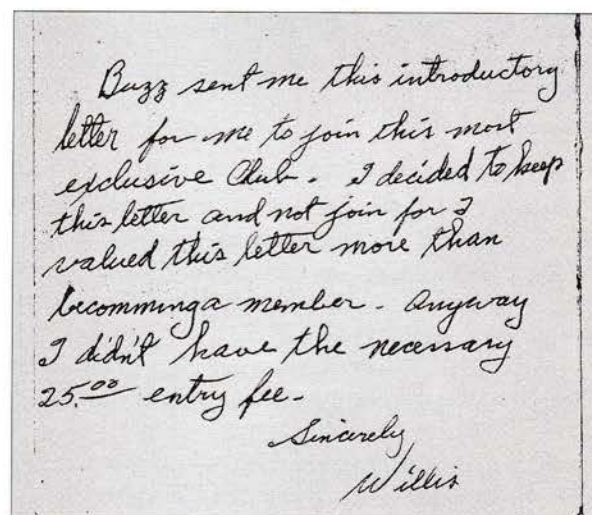 Buzz sent me this introductory
letter for me to join this most
exclusive Club. I decided to keep
this letter and not join for I
valued this letter more than
becomming a member. Anyway
I didn't have the necessary
25.00 entry fee.
Sincerely,
Willis